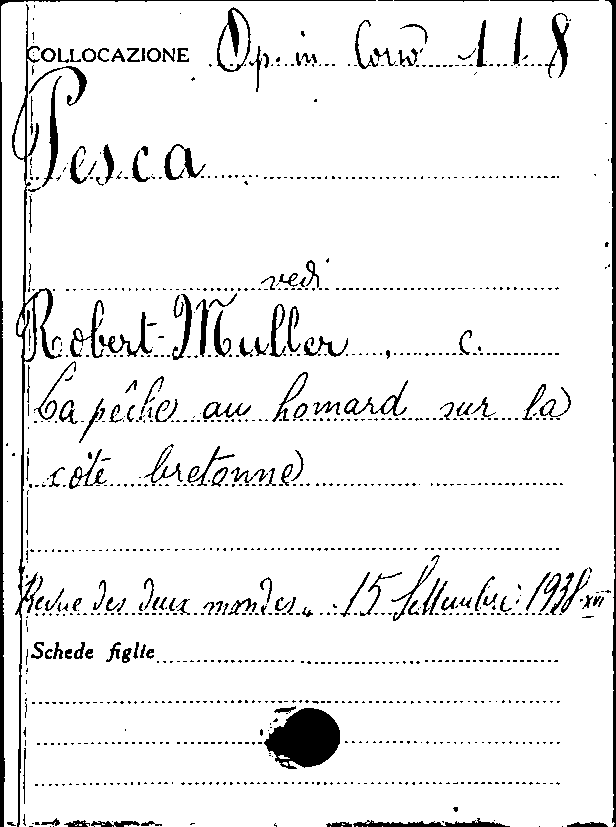 COLLOCAZIONE Op. in Corso 118
Pesca
vedi
Robert-Muller, C.
La pêche au homard sur la
côte bretonne
Revue des deux mondes„ 15 Settembre 1938-XVI
Schede figlie